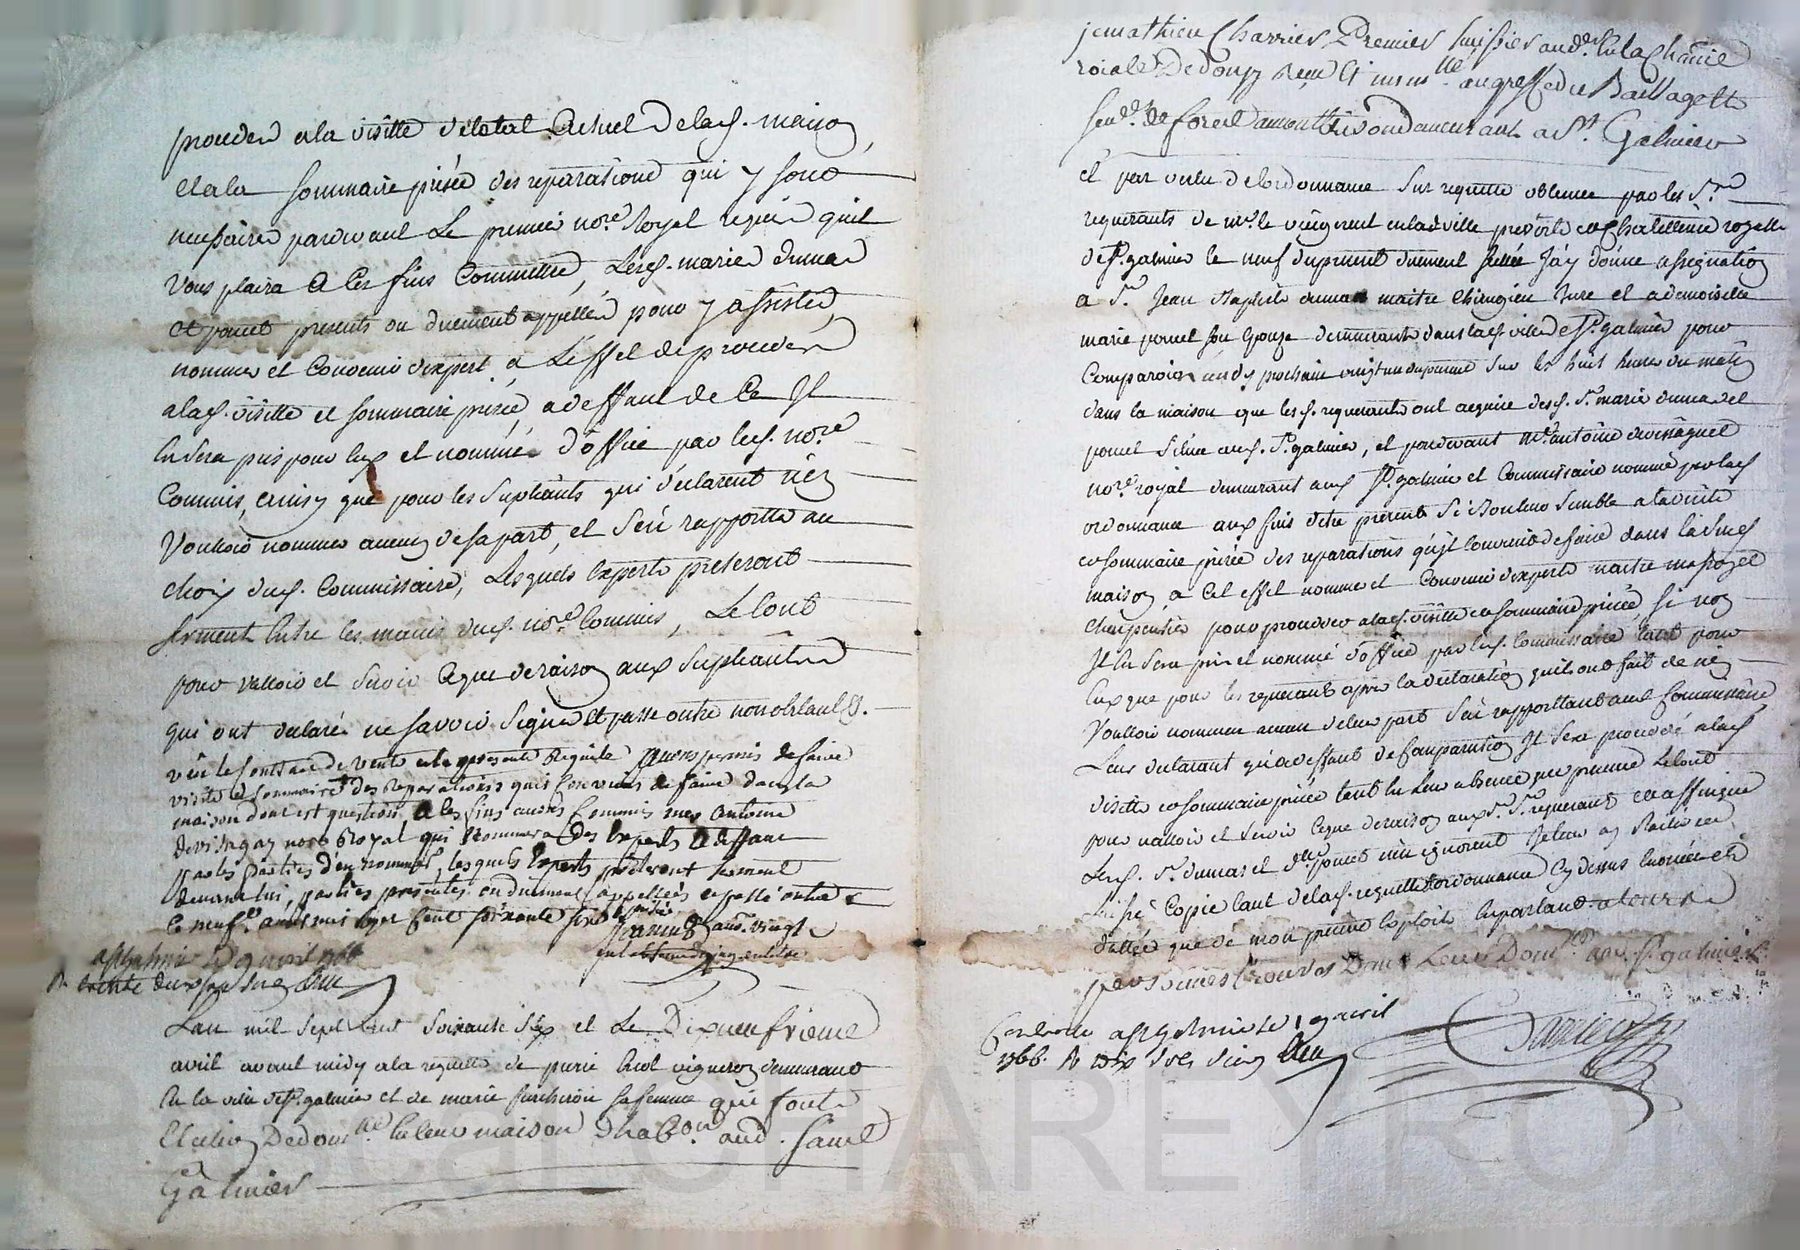 proceder a la visitte de letat actuel de lad. maison,
et a la sommaire prisée des reparations qui y sont
necessaires pardevant le premier no.re Royal requis quil
vous plaira a ces fins commettre, lesd. mariés dumas
et poncet presents ou duement appellés pour y assister,
nommer et convenir dexpert a l'effet de proceder
a lad. visitte et sommaire prisée, a deffaut de ce Il
en sera pris pour eux et nommé d'office par led. no.re
commis, ainsy que pour les supliants qui déclarent n'en
vouloir nommer aucun de sa part, et s'en rapporter au
choix dud. commissaire, lesquels experts preteront
serment entre les mains dud. no.re commis, le tout
pour valloir et servir ceque de raison aux supliants
qui ont declaré ne savoir signer et passé outre nonobstant
veu le contrat de vente et la presente Requete avons permis de faire
visite et sommaire des Reparations quil convient de faire dans la
maison dont est question, a ces fins avons commis mes Antoine
no.re Royal qui nommera des experts a deffaut
par les parties d'en nommer, lesquels experts preteront serment
devant lui, parties presentes ou duement appellées et passé outre
le neuf avril mil sept cent soixante six
a St galmier le 9 avril 1766
R.
Lan mil sept cent soixante six et le Dixneufvieme
avril avant midy a la requette de pierre vigneron demeurant
en la ville de St. galmier et de marie sa femme que font
Election De dom.lle en leur maison d'hab.on aud. Saint
Galmier
je mathieu Charrier Premier huissier aud.er en la Ch.nie
roiale De Donzy Reçu et imm.lle au greffe du Baillage et
Sen.ée de forest a montbrison demeurant a St. Galmier
et par vertu de lordonnance sur requette obtenue par les S.rs
requerants de m.r le vicegerent en la ville prevoté et Chatellenie royalle
de St. galmier le neuf du present duement scellée J'ay donné assignation
a S.r Jean Baptiste dumas maitre chirugien Juré et a demoiselle
marie poncet son epouze demeurants dans lad. ville de St. galmier pour
comparoir prochain vingt un du present sur les huit heures du matin
dans la maison que lesd. requerants ont acquise desd. S.r mariés dumas et
poncet sittuée aud. St. galmier, et pardevant m.e antoine
no.re royal demeurant aud. St. galmier et commissaire nommé par lad.
ordonnance aux fins detre presents si bon leur semble a la visitte
et sommaire prisée des reparations qu'il convient de faire dans la susd.
maison, a cet effet nommer et convenir d'experts maitre
charpentier pour proceder a lad. visitte et sommaire prisée, si non
Il en sera pris et nommé d'office par led. commissaire tant pour
eux que pour les requerants apres la declaration quils ont fait de n'en
vouloir nommer aucun de leur part s'en rapportant aud. commissaire
leur declarant qu'a deffaut de comparution Il sera procedé a lad.
visitte et sommaire prisée tant en leur absence que presence le tout
pour valloir et servir ceque de raison aux S.rs requerants et affinque
lesd. S.r dumas et d.lle poncet n'en ignorent Je leur ay
laissé copie tant de lad. requette ordonnance cy dessus enoncée et
dattée que de mon present exploit en parlant a leurs
personnes trouvés Dans Leurs Dom.les aud. St galmier
Controlle a St galmier le 19 avril
1766. R dix sols six den
Charrier